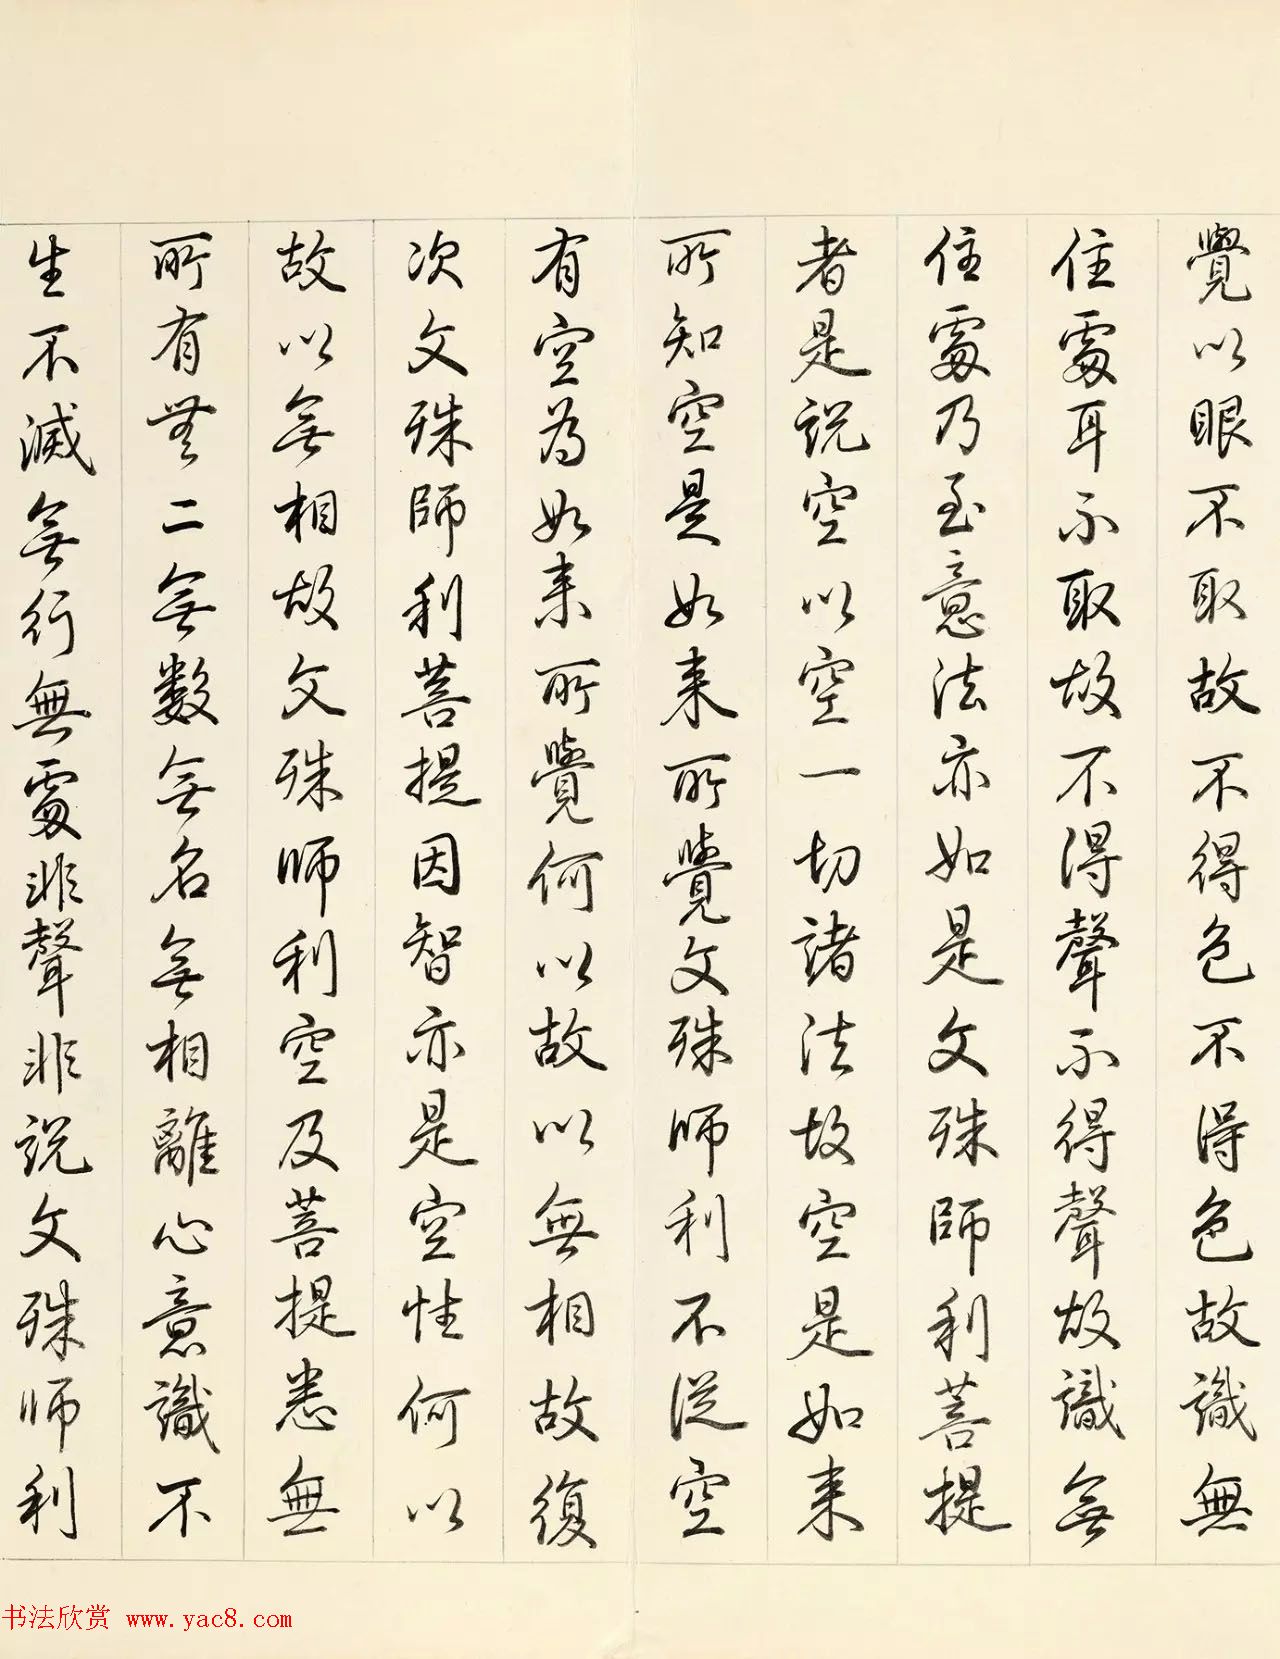 覺以眼不取故不得色不得色故識無
住處耳不取故不得聲不得聲故識無
住處乃至意法亦如是文殊師利菩提
者是說空以空一切諸法故空是如來
所知空是如來所覺文殊師利不從空
有空為如來所覺何以故以無相故復
次文殊師利菩提因智亦是空性何以
故以無相故文殊師利空及菩提悉無
所有無二無數無名無相離心意識不
生不滅無行無處非聲非說文殊師利
书法欣赏 www.yac8.com